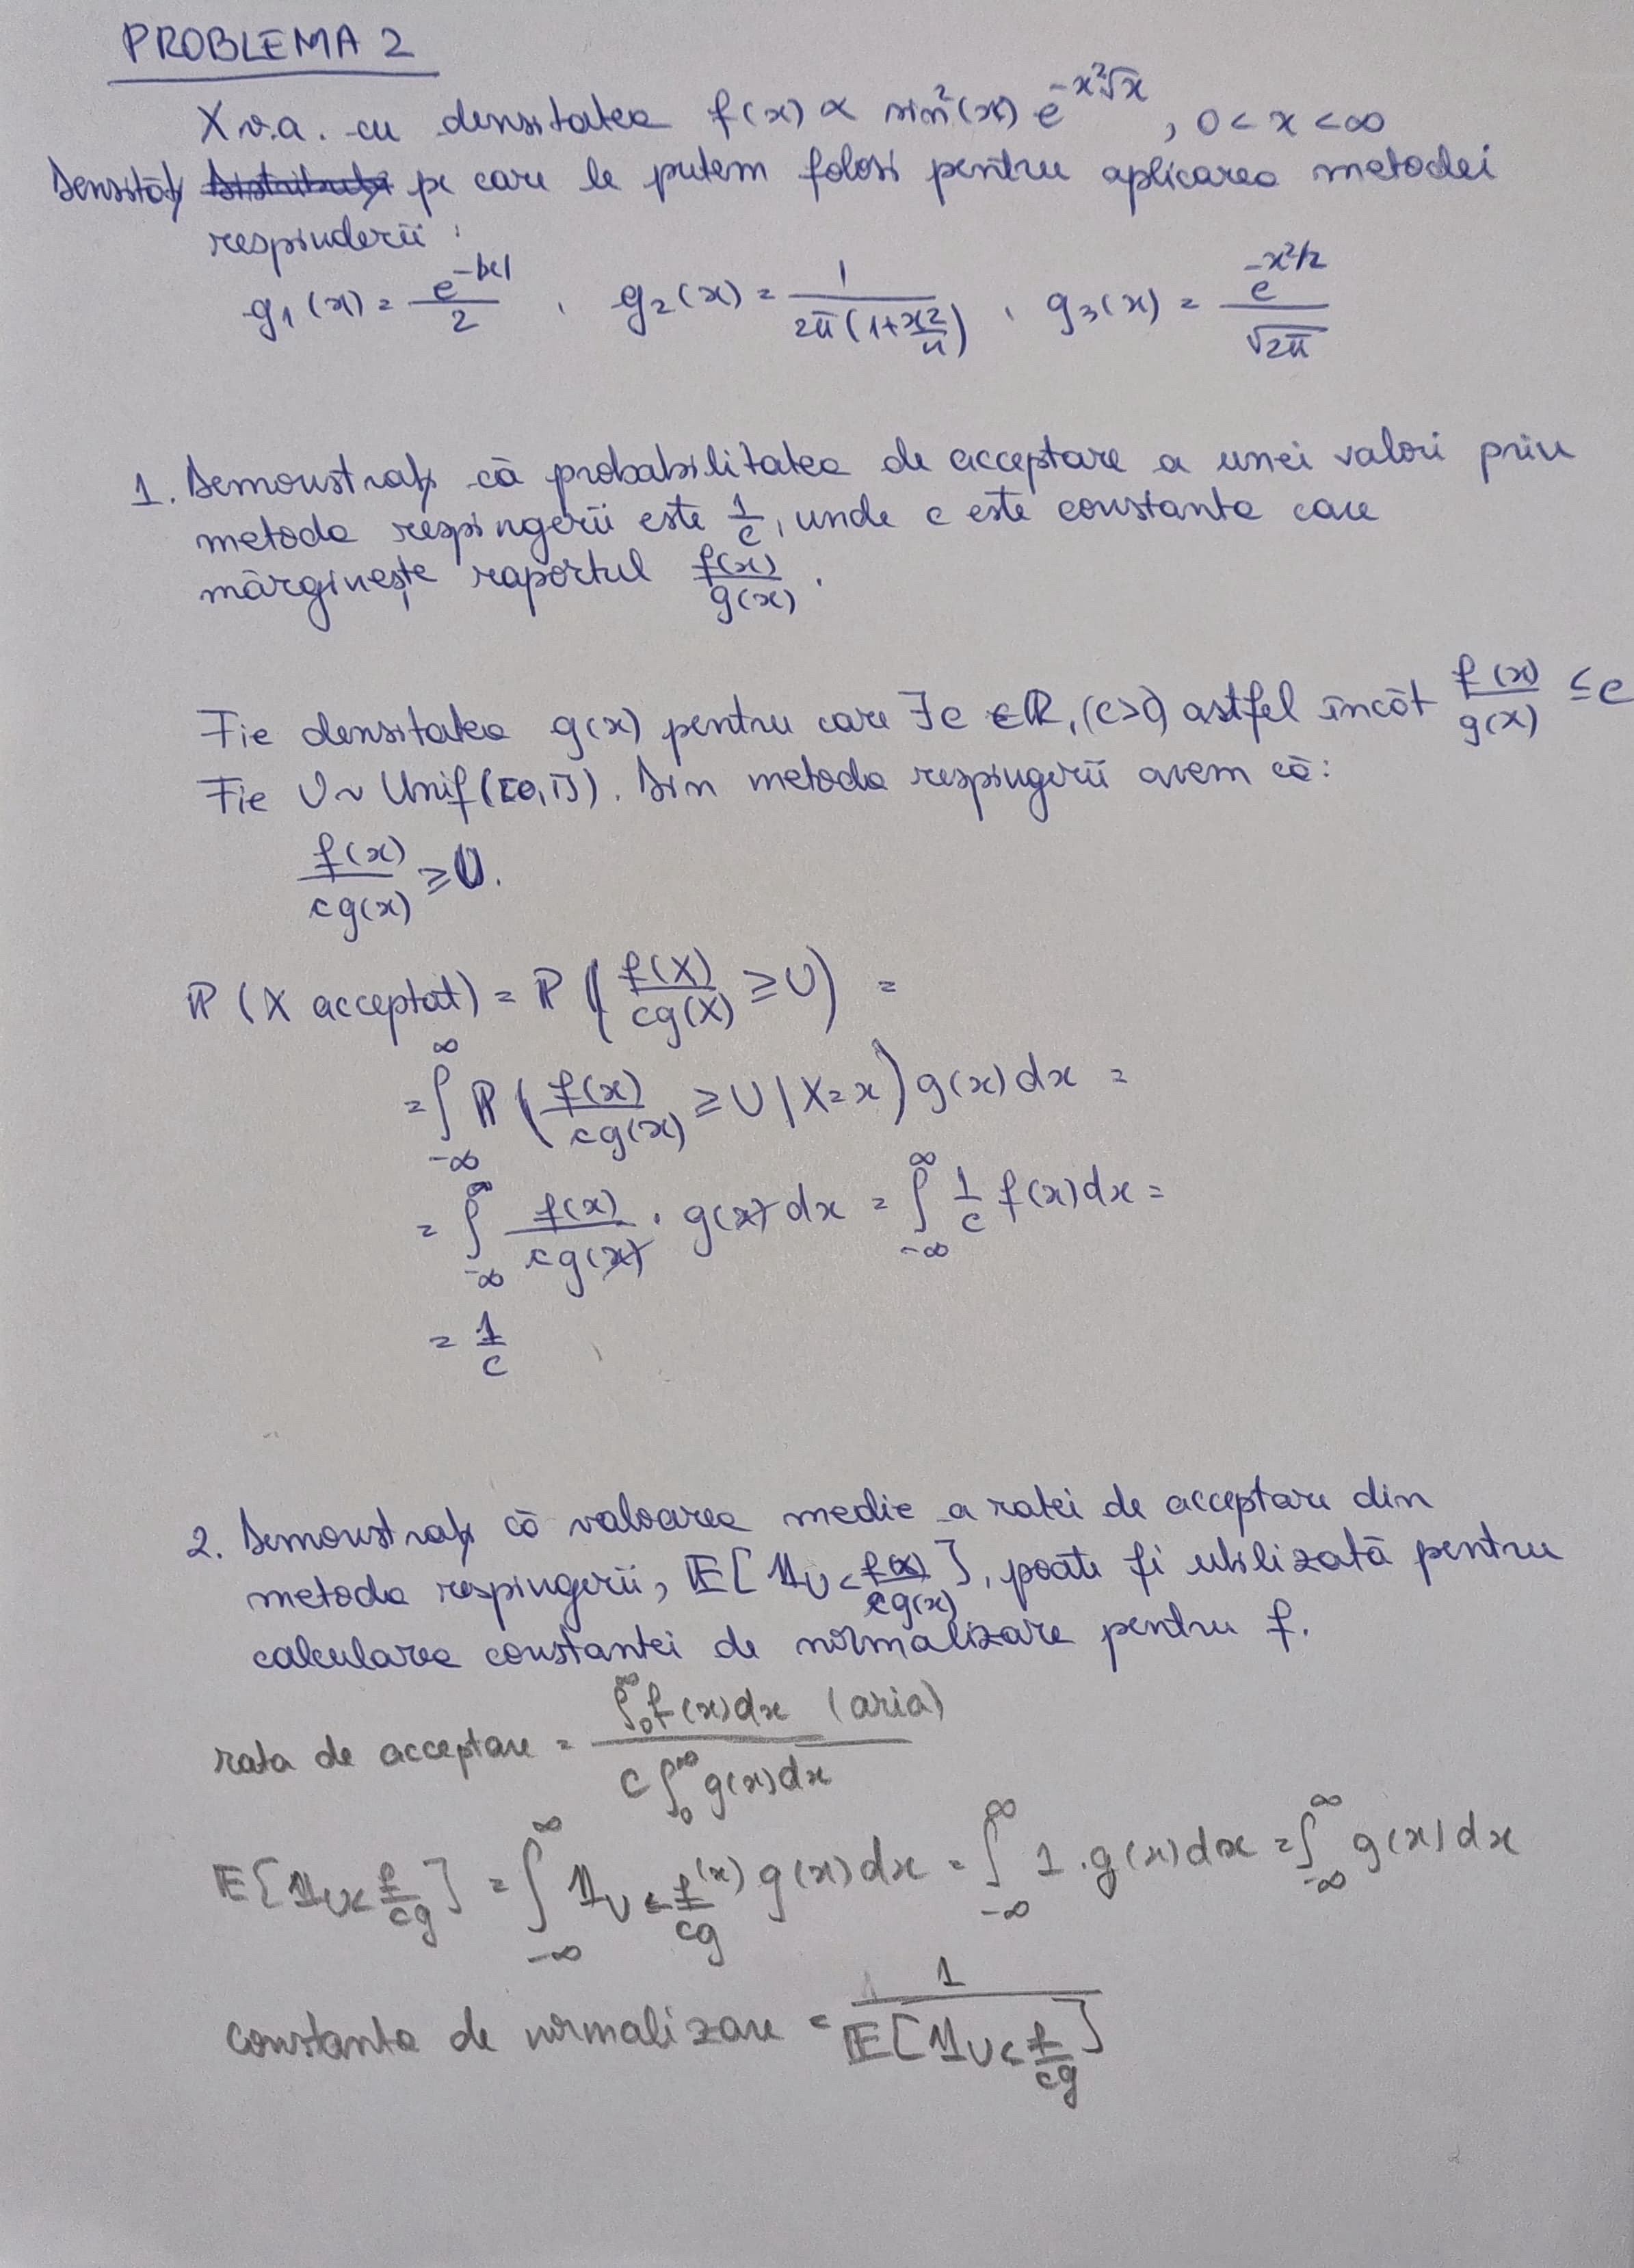 PROBLEMA 2
X v.a. cu densitatea f(x) ∝ sin²(x) e^{-x²√x}, 0 < x < ∞
Densităţi pe care le putem folosi pentru aplicarea metodei
respinderii:
g₁(x) = e^{-|x|}/2 , g₂(x) = 1/(2π(1+x²/4)) , g₃(x) = e^{-x²/2}/√2π
1. Demonstraţi că probabilitatea de acceptare a unei valori prin
metoda respingerii este 1/c, unde c este constanta care
mărgineşte raportul f(x)/g(x).
Fie densitatea g(x) pentru care ∃c ∈ ℝ, (c>0) astfel încât f(x)/g(x) ≤ c
Fie U ~ Unif([0,1]). Din metoda respingerii avem că:
f(x)/cg(x) ≥ U.
ℙ(X acceptat) = ℙ(f(X)/cg(X) ≥ U) =
= ∫_{-∞}^{∞} ℙ(f(x)/cg(x) ≥ U | X=x) g(x) dx =
= ∫_{-∞}^{∞} f(x)/cg(x) · g(x) dx = ∫_{-∞}^{∞} 1/c f(x) dx =
= 1/c
2. Demonstraţi că valoarea medie a ratei de acceptare din
metoda respingerii, 𝔼[𝟙_{U < f(x)/cg(x)}], poate fi utilizată pentru
calcularea constantei de normalizare pentru f.
rata de acceptare = ∫_0^∞ f(x)dx (aria) / c∫_0^∞ g(x)dx
𝔼[𝟙_{U < f/cg}] = ∫_{-∞}^{∞} 𝟙_{U < f/cg}(x) g(x) dx = ∫_{-∞}^{∞} 1·g(x) dx = ∫_{-∞}^{∞} g(x) dx
constanta de normalizare = 1/𝔼[𝟙_{U < f/cg}]